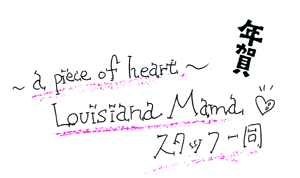 年賀
~ a piece of heart ~
Louisiana Mama
スタッフ一同